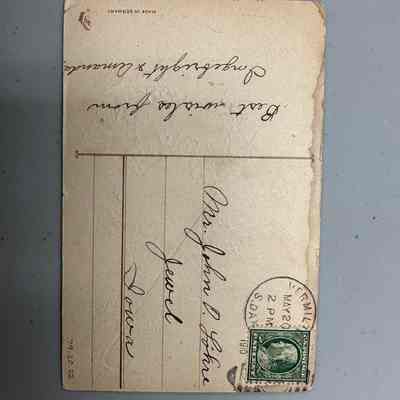 MADE IN GERMANY
Best wishes from
Ingebright & Amanda
Mr. John P. Lohre
Jewel
Iowa
VERMIL
MAY 20
2 PM
1910
S.DAK